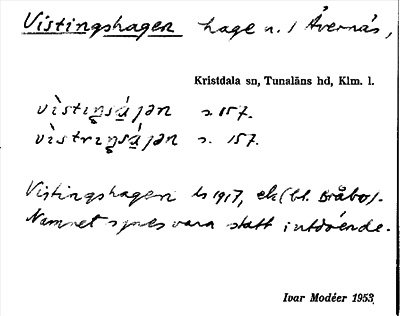 Vistingshagen hage n. i Åvernäs,
Kristdala sn, Tunaläns hd, Klm. l.
vìstiŋsá̱jən s. 157.
vìstriŋsá̱jən s. 157.
Vistingshagen ls 1917, ek (bl. Bråbo).
Namnet synes vara statt i utdöende.
Ivar Modéer 1953